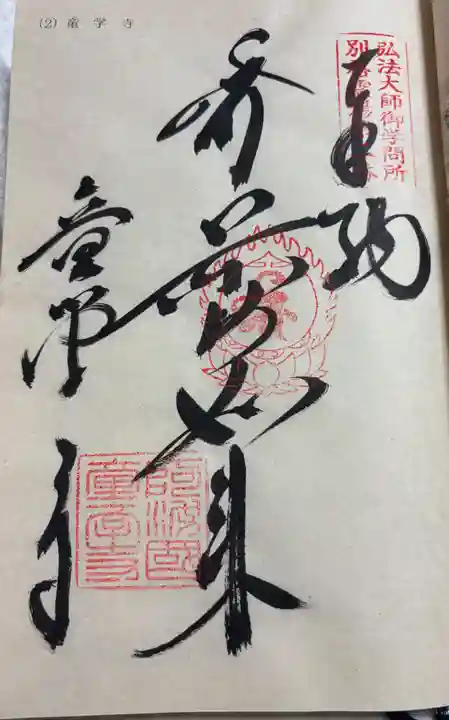 (2) 童学寺
弘法大師御学問所
別格霊場
奉納
薬師如来
童学寺
阿波国
童学寺